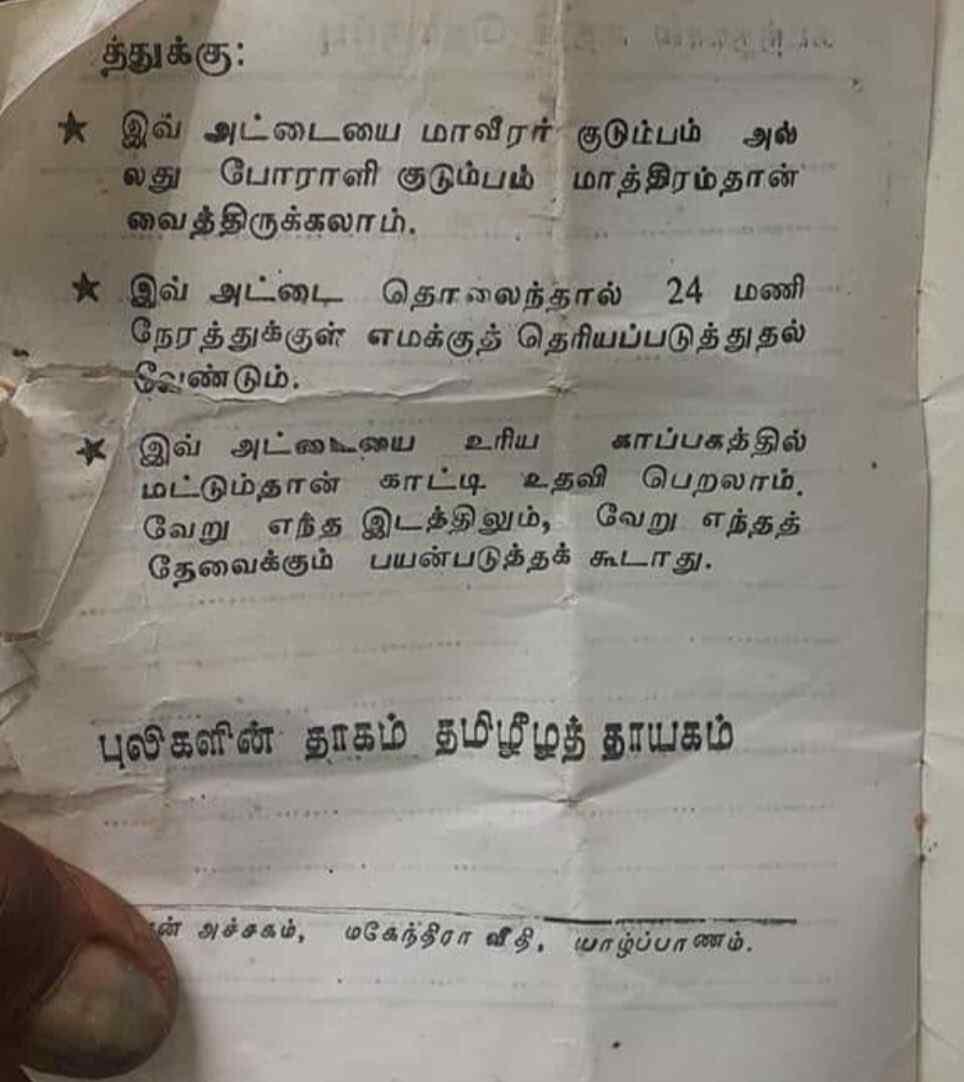 த்துக்கு:
★ இவ் அட்டையை மாவீரர் குடும்பம் அல்
லது போராளி குடும்பம் மாத்திரம்தான்
வைத்திருக்கலாம்.
★ இவ் அட்டை தொலைந்தால் 24 மணி
நேரத்துக்குள் எமக்குத் தெரியப்படுத்துதல்
வேண்டும்.
★ இவ் அட்டையை உரிய காப்பகத்தில்
மட்டும்தான் காட்டி உதவி பெறலாம்.
வேறு எந்த இடத்திலும், வேறு எந்தத்
தேவைக்கும் பயன்படுத்தக் கூடாது.
புலிகளின் தாகம் தமிழீழத் தாயகம்
அச்சகம், மகேந்திரா வீதி, யாழ்ப்பாணம்.